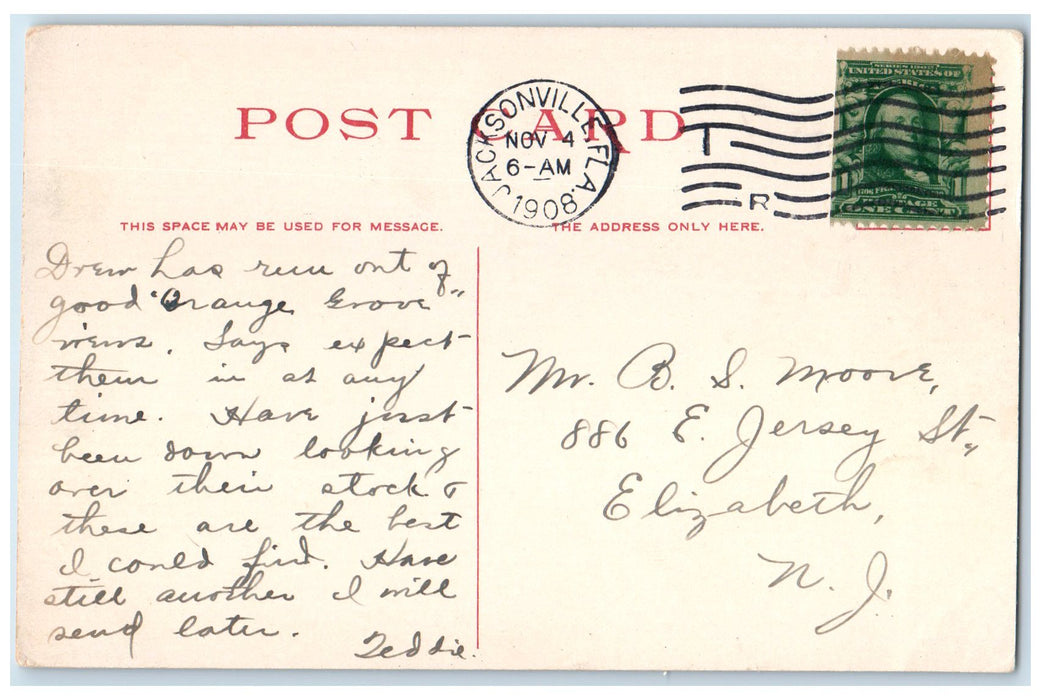 POST CARD
JACKSONVILLE, FLA.
NOV 4
6-AM
1908
T
R
SERIES 1902
UNITED STATES OF AMERICA
POSTAGE
ONE CENT
THIS SPACE MAY BE USED FOR MESSAGE.
THE ADDRESS ONLY HERE.
Drew has run out of
good "Orange Grove"
views. Says expect
them in at any
time. Have just
been down looking
over their stock &
these are the best
I could find. Have
still another I will
send later.
Teddie.
Mr. B. S. Moore,
886 E. Jersey St.,
Elizabeth,
N. J.